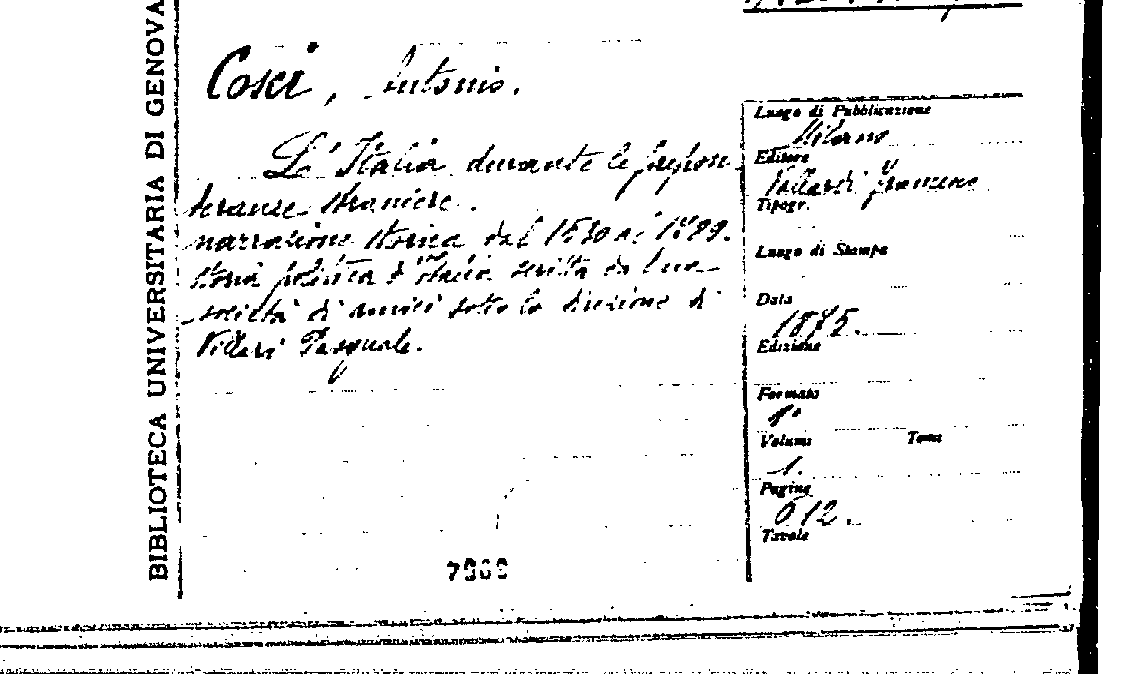 BIBLIOTECA UNIVERSITARIA DI GENOVA
Cosci, Antonio.
L'Italia durante le prepon-
deranze straniere.
narrazione storica dal 1530 al 1789.
storia politica d'Italia scritta da una
società di amici sotto la direzione di
Villari Pasquale.
7969
Luogo di Pubblicazione
Milano
Editore
Vallardi Francesco
Tipogr.
Luogo di Stampa
Data
1875.
Edizione
Formato
8°
Volumi Tomi
1.
Pagine
612.
Tavole